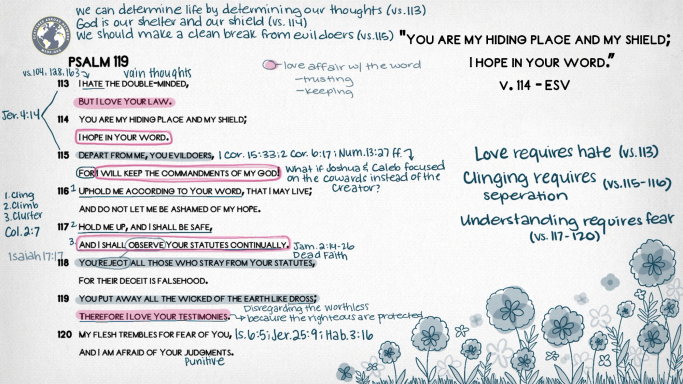 we can determine life by determining our thoughts (vs.113)
God is our shelter and our shield (vs.114)
we should make a clean break from evildoers (vs.115)
"YOU ARE MY HIDING PLACE AND MY SHIELD;
I HOPE IN YOUR WORD."
V. 114 - ESV
PSALM 119
love affair w/ the word
- trusting
- keeping
vs.104, 128, 163
vain thoughts
113 I HATE THE DOUBLE-MINDED,
BUT I LOVE YOUR LAW.
Jer. 4:14
114 YOU ARE MY HIDING PLACE AND MY SHIELD;
I HOPE IN YOUR WORD.
115 DEPART FROM ME, YOU EVILDOERS, 1 Cor. 15:33; 2 Cor. 6:17; Num. 13:27 ff.
FOR I WILL KEEP THE COMMANDMENTS OF MY GOD!
What if Joshua & Caleb focused
on the cowards instead of the
Creator?
1. Cling
2. Climb
3. Cluster
Col. 2:7
116 1 UPHOLD ME ACCORDING TO YOUR WORD, THAT I MAY LIVE;
AND DO NOT LET ME BE ASHAMED OF MY HOPE.
117 2 HOLD ME UP, AND I SHALL BE SAFE,
3. AND I SHALL OBSERVE YOUR STATUTES CONTINUALLY.
Jam. 2:14-26
Dead Faith
Isaiah 17:17
118 YOU REJECT ALL THOSE WHO STRAY FROM YOUR STATUTES,
FOR THEIR DECEIT IS FALSEHOOD.
119 YOU PUT AWAY ALL THE WICKED OF THE EARTH LIKE DROSS;
Disregarding the worthless
THEREFORE I LOVE YOUR TESTIMONIES.
because the righteous are protected
120 MY FLESH TREMBLES FOR FEAR OF YOU, Is. 6:5; Jer. 25:9; Hab. 3:16
AND I AM AFRAID OF YOUR JUDGMENTS.
Punitive
Love requires hate (vs.113)
Clinging requires
seperation
(vs.115-116)
Understanding requires fear
(vs. 117-120)